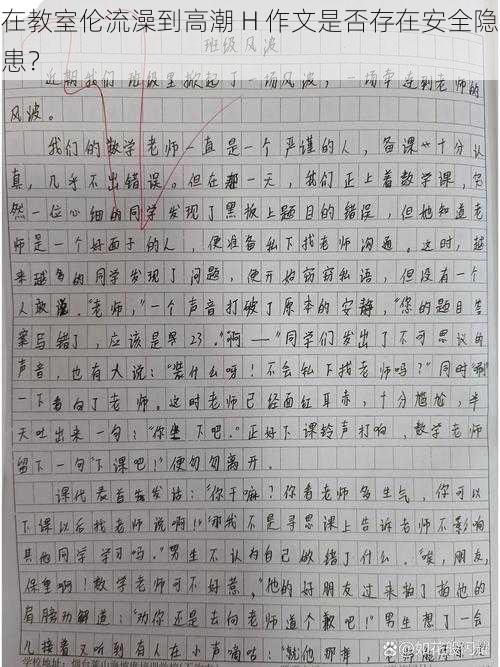 在教室伦流澡到高潮 H 作文是否存在安全隐
患?
班级风波
近期我们班级里掀起了一场风波，一场牵连到老师的
风波。
我们的数学老师一直是一个严谨的人，备课十分认
真，几乎不出错误。但在那一天，我们正上着数学课，忽
然一位心细的同学发现了黑板上题目的错误，但她知道老
师是一个好面子的人，便准备私下找老师沟通。这时，越
来越多的同学发现了问题，便开始窃窃私语，但没有一个
人敢说。"老师，"一个声音打破了原本的安静，"您的题目答
案写错了，应该是 23。""啊——"同学们发出了不可思议的
声音，也有大说："装什么呀！不会私下找老师吗？"同时"唰"
一下看向了老师。这时老师已经面红耳赤，十分尴尬，半
天吐出来一句："你坐下吧。"正好下课铃声打响，数学老师
留下一句"下课吧！"便匆匆离开。
课代表首先发话："你干嘛？你看老师多生气，你可以
下课以后找老师说啊！""那我不是寻思课上告诉老师不影响
其他同学学习吗。"男生不认为自己做错了什么。"唉，朋友，
保重啊！数学老师可不好惹，"他的好朋友过来拍了拍他的
肩膀劝解道："劝你还是去向老师道个歉吧！"男生想了一会
儿接着又听到有人在小声嘀咕："就他那样，